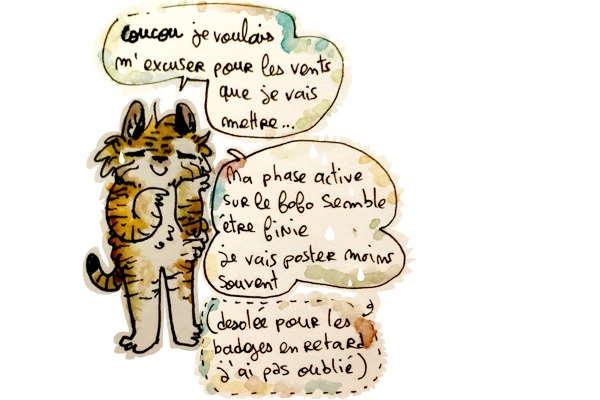 coucou je voulais
m'excuser pour les vents
que je vais
mettre...
Ma phase active
sur le fofo semble
être finie
Je vais poster moins
souvent
(desolée pour les
badges en retard
j'ai pas oublié)